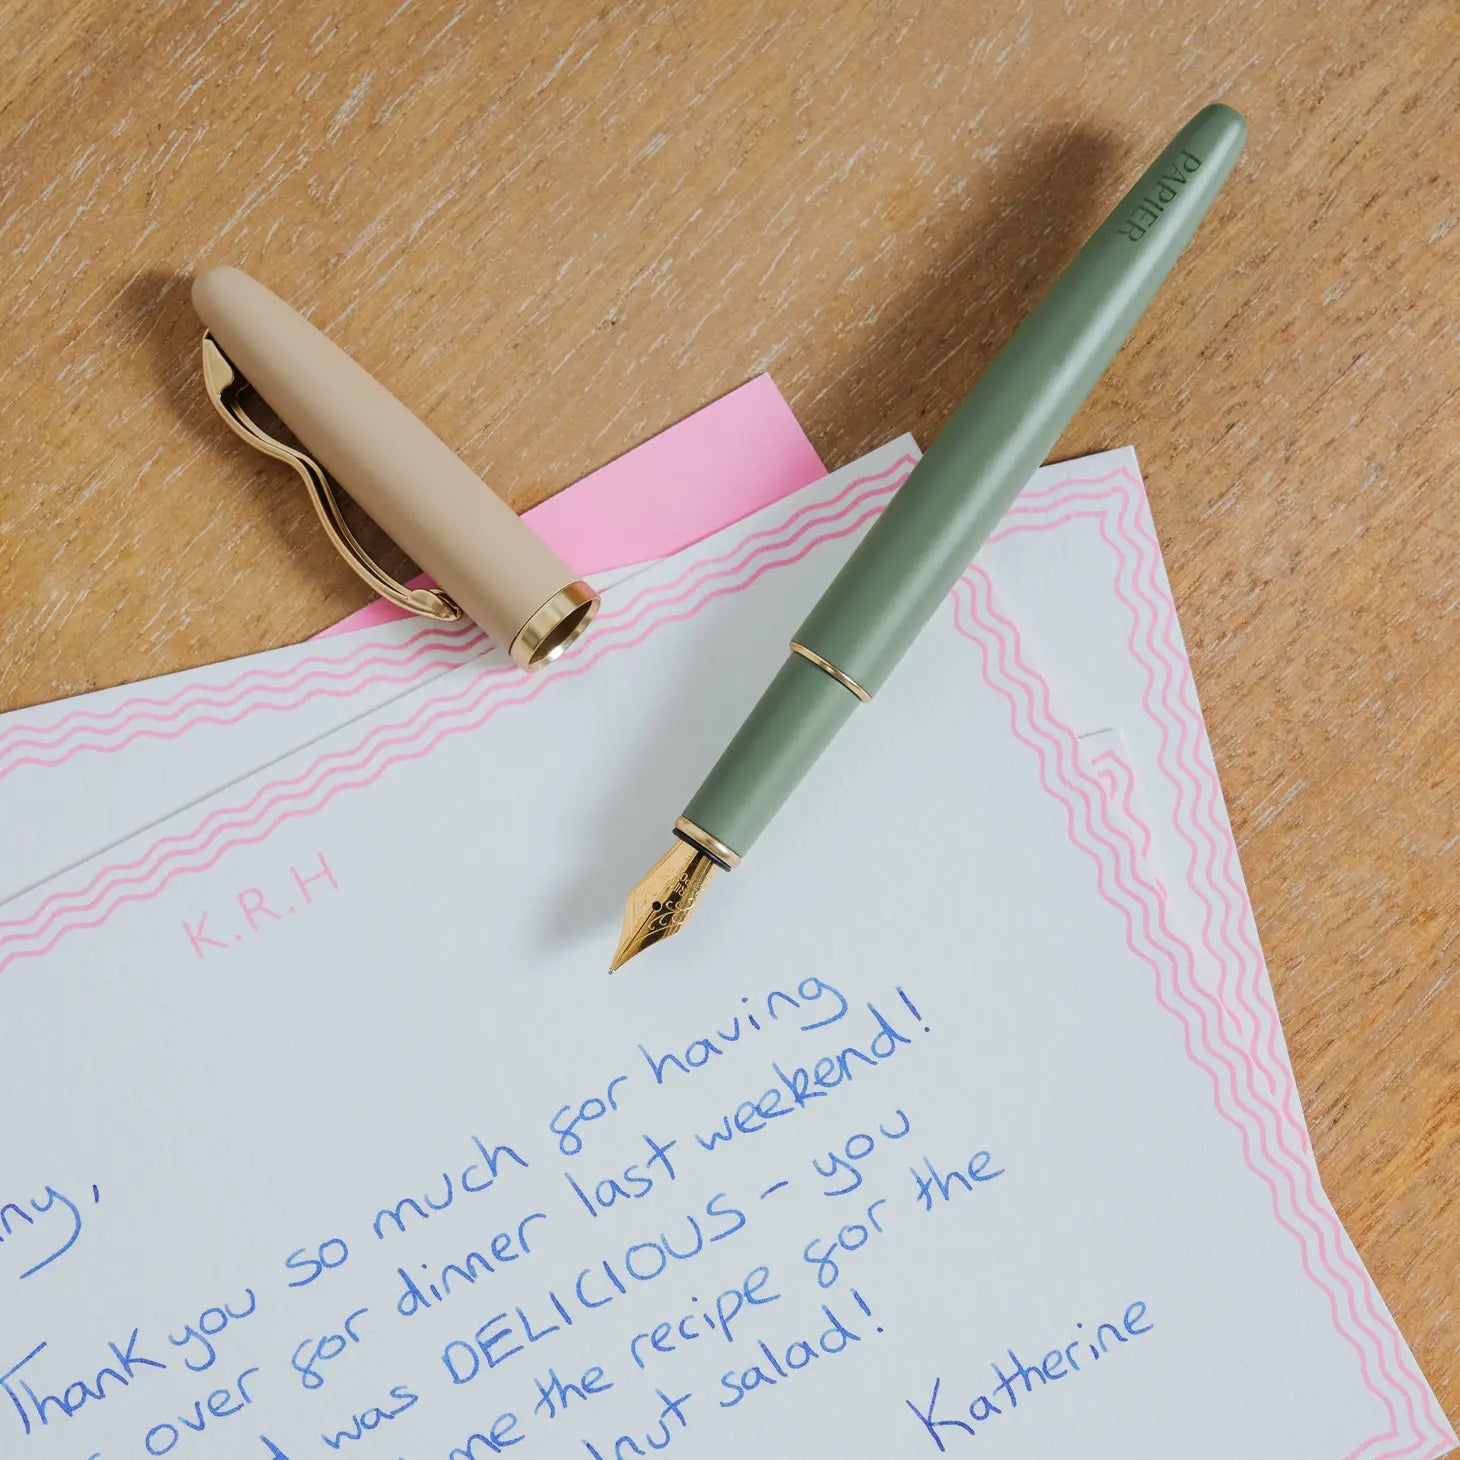 PAPIER
K.R.H
Thank you so much for having
over for dinner last weekend!
was DELICIOUS – you
me the recipe for the
salad!
Katherine